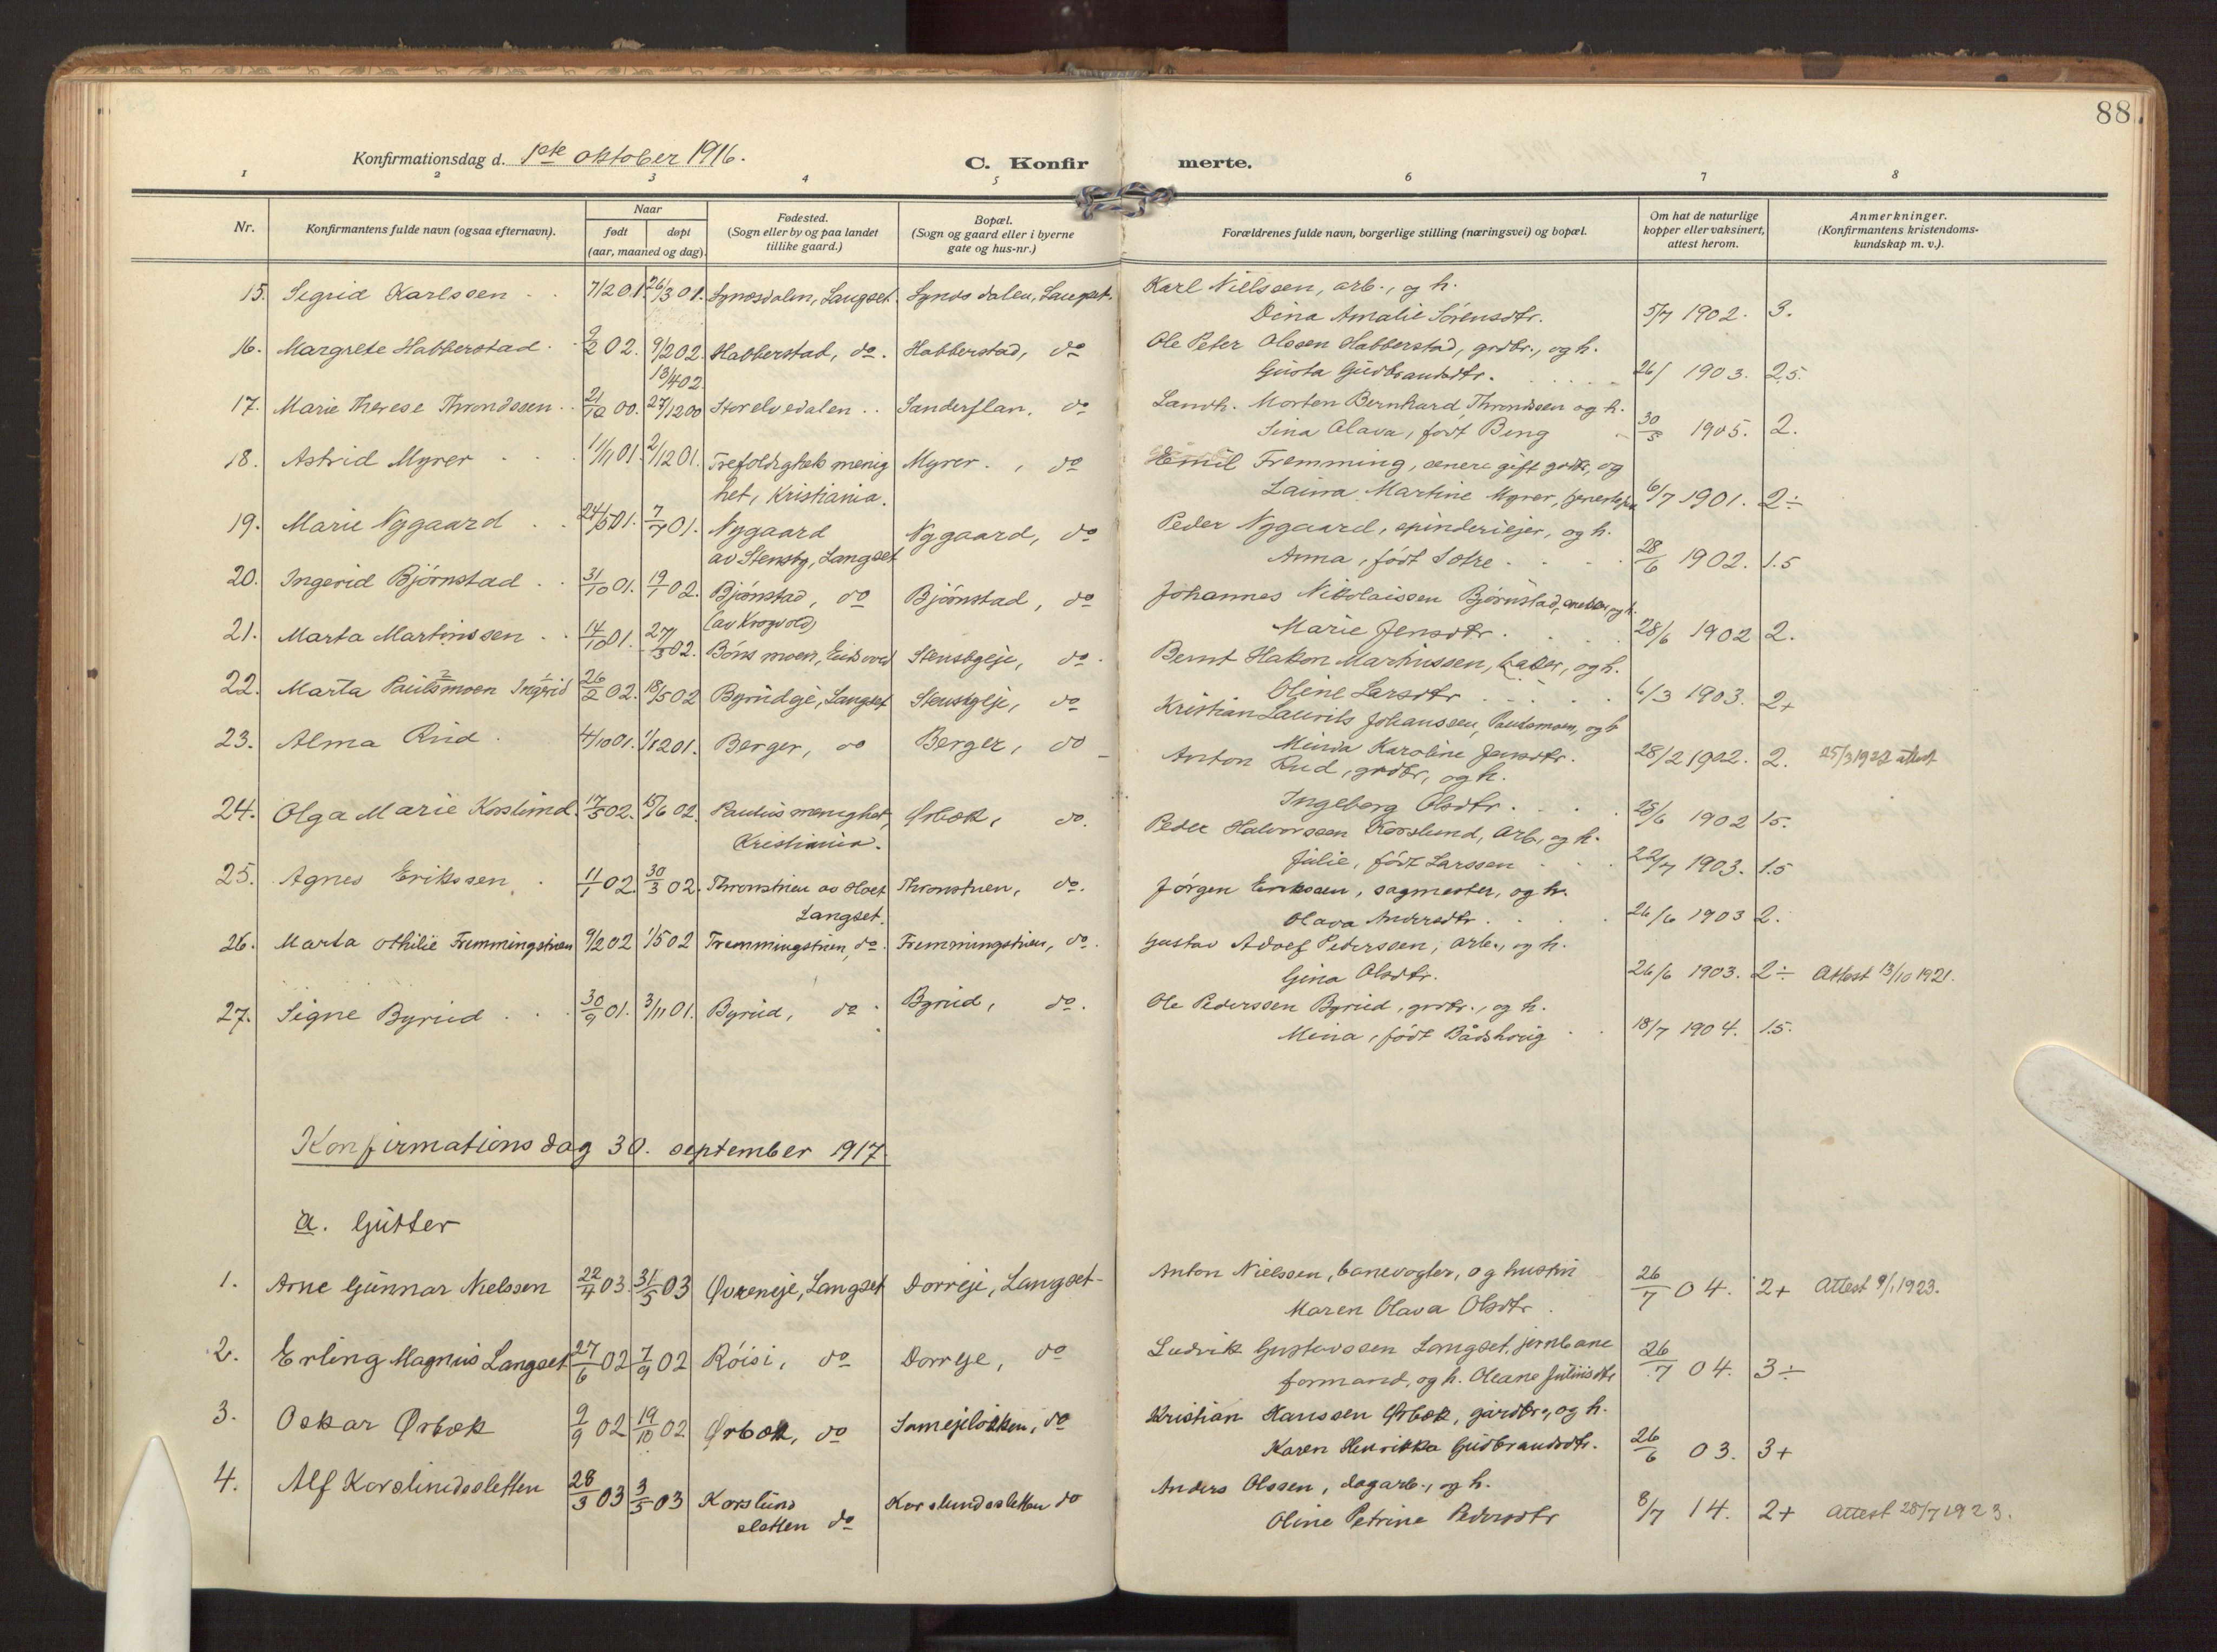 88
Konfirmationsdag d. 1ste oktober 1916.
C. Konfirmerte.
1 2 3 4 5 6 7 8
Nr.
Konfirmantens fulde navn (ogsaa efternavn).
Naar
født døpt
(aar, maaned og dag).
Fødested.
(Sogn eller by og paa landet
tillike gaard.)
Bopæl.
(Sogn og gaard eller i byerne
gate og hus-nr.)
Forældrenes fulde navn, borgerlige stilling (næringsvei) og bopæl.
Om hat de naturlige
kopper eller vaksinert,
attest herom.
Anmerkninger.
(Konfirmantens kristendoms-
kundskap m. v.).
15. Sigrid Karlssen 7/2 01. 26/3 01. Synsdalen, Langset. Synsdalen, Langset. Karl Nielssen, arb., og h.
Dina Amalie Sörensdtr. 5/7 1902. 3.
16. Margrete Habberstad. 9/2 02. 9/2 02. Habberstad, do. Habberstad, do Ole Peter Olssen Habberstad, grdbr., og h.
13/4 02. Gusta Gudbrandsdtr. 26/ 1903. 2,5.
17. Marie Therese Throndssen 21/12 00. 27/12 00 Storelvedalen Sanderflan, do Landh. Morten Bernhard Throndsen og h.
Sina Olava, født Beng 30/5 1905. 2.
18. Astrid Myrer 11/11 01. 2/12 01. Trefoldighets menig Myrer, do Emil Fremming, senere gift grdbr, og
het, Kristiania. Laura Martine Myrer, 6/7 1901. 2÷
19. Marie Nygaard 24/5 01. 7/7 01. Nygaard Nygaard, do Peder Nygaard, spinderiejer, og h.
av Stensby, Langset Anna, født Sætre 28/6 1902. 1.5
20. Ingerid Björnstad 31/10 01. 19/1 02. Björnstad, do Björnstad, do Johannes Nikolaissen Björnstad, snekker, og h.
(av Krogvold) Marie Jensdtr. 28/6 1902 2.
21. Marta Martinssen 14/10 01. 27/3 02. Böns moen, Eidsvold Stensbyeje, do Bernt Hakon Martinssen, og h.
Oline Larsdtr 6/3 1903. 2+
22. Marta Paulsmoen Ingrid 26/2 02. 18/5 02 Byrudeje, Langset Stensbyeje, do Kristian Laurits Johanssen, Paulsmoen, og h
Minda Karoline Jensdtr. 28/2 1902. 2. 25/3 1922 attest
23. Alma Rud. 4/10 01. 1/12 01. Berger, do Berger, do Anton Rud, grdbr, og h.
Ingeborg Olsdtr. 28/6 1902 1.5.
24. Olga Marie Korslund. 17/5 02. 15/6 02. Paulus menighet, Ørbæk, do. Peder Halvorssen Korslund, arb., og h.
Kristiania. Julie, född Larssen 22/7 1903. 1.5
25. Agnes Erikssen 11/1 02. 30/3 02. Thronstuen av Hoel Thronstuen, do. Jörgen Erikssen, sagmester, og h.
Langset. Olava Andersdtr. 26/6 1903 2.
26. Marta Othilie Fremmingstuen 9/2 02 1/5 02 Fremmingstuen, do. Fremmingstuen, do. Gustav Adolf Pederssen, arb., og h.
Gina Olsdtr. 26/6 1903. 2÷ Attest 13/10 1921.
27. Signe Byrud 30/9 01. 3/11 01. Byrud, do Byrud, do. Ole Pederssen Byrud, grdbr., og h.
Mina, født Bådshaug 18/7 1904. 1.5.
Konfirmationsdag 30. september 1917.
a. Gutter
1. Arne Gunnar Nielssen 22/4 03. 31/5 03 Øvreneje, Langset Dorreje, Langset Anton Nielssen, banevogter, og hustru
Maren Olava Olsdtr. 26/7 04. 2+ Attest 9/1 1923.
2. Erling Magnus Langset 27/6 02 7/9 02 Röisi, do Dorreje, do Ludvik Gustavssen Langset, jernbane
formand, og h. Oleane Juliusdtr 26/7 04. 3÷
3. Oskar Ørbæk 9/9 02 19/10 02 Ørbæk, do Samejlökken, do Kristian Hanssen Ørbæk, gårdbr., og h.
Karen Henrikka Gudbrandsdtr. 26/6 03. 3+
4. Alf Korslundssletten 28/3 03 3/5 03 Korslund Korslundssletten do Anders Olssen, dagarb., og h.
sletten do Oline Petrine Pedersdtr 8/7 14. 2+ Attest 28/7 1923.